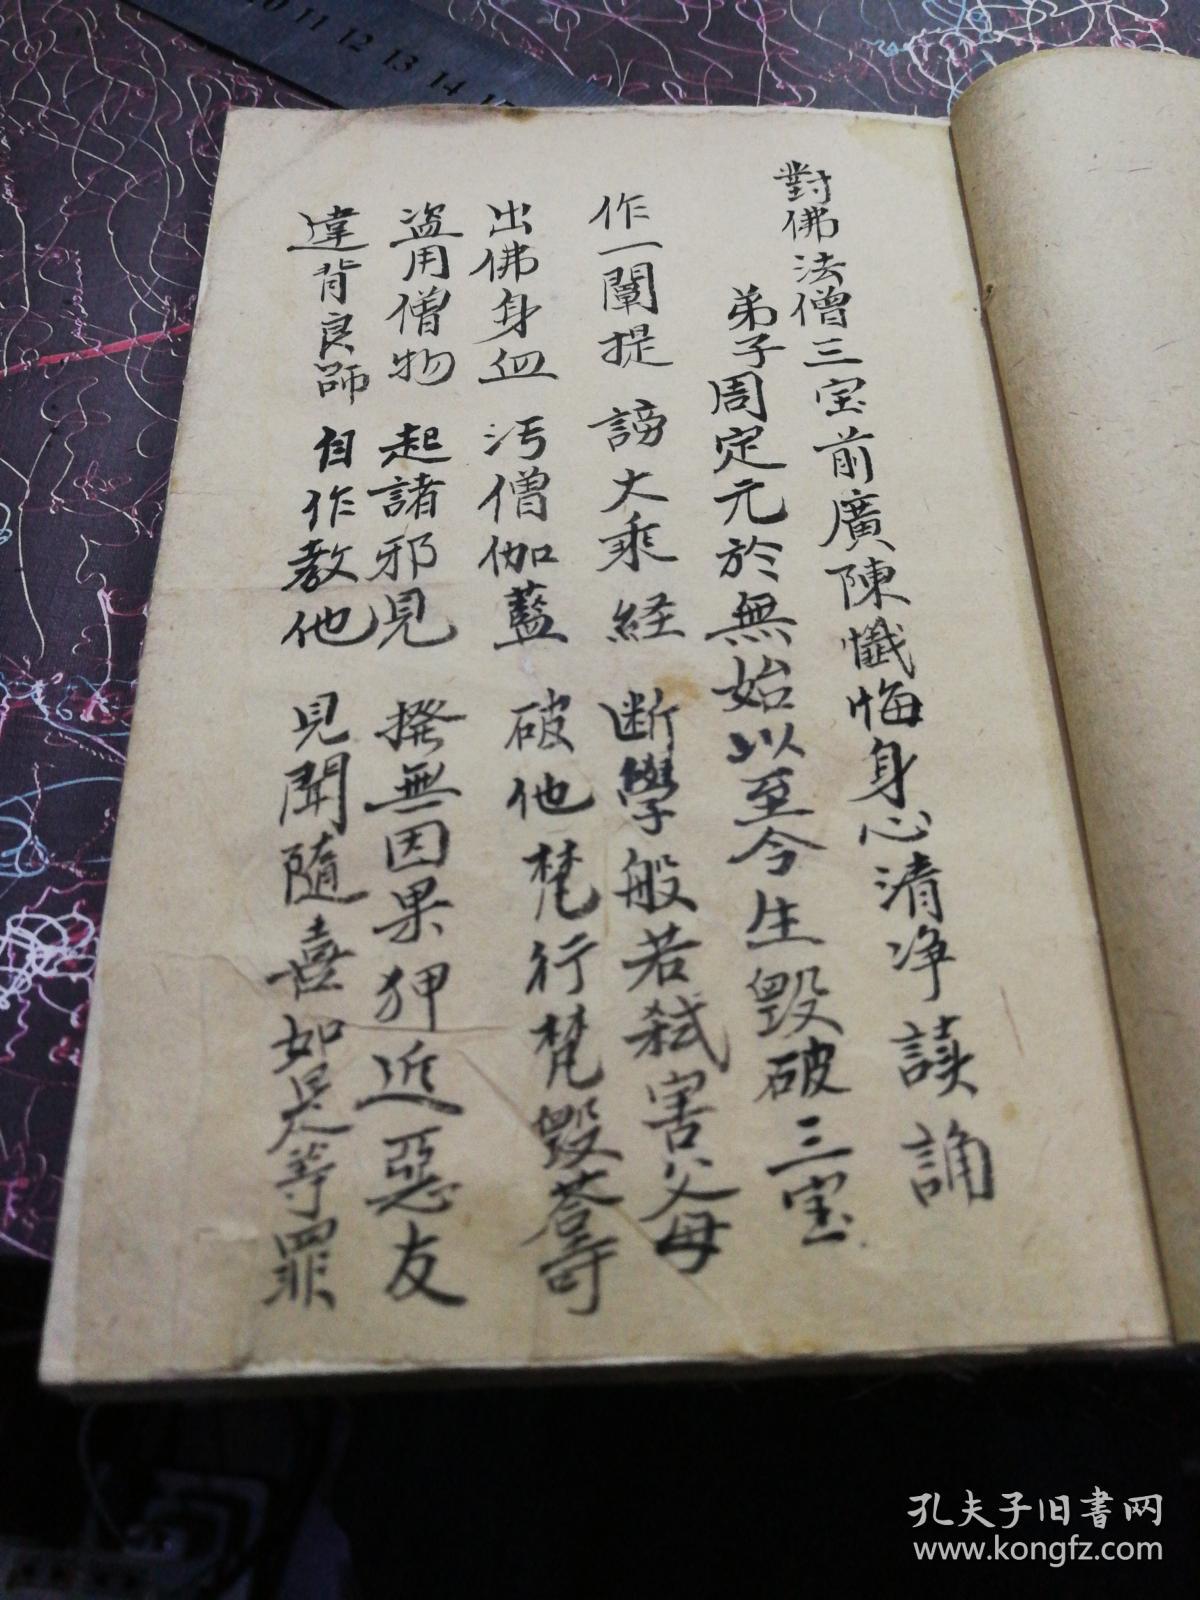 對佛法僧三宝前廣陳懺悔身心清净讀誦
弟子周定元於無始以至今生毀破三宝
作一闡提 謗大乘経 断學般若弑害父母
出佛身血 汚僧伽藍 破他梵行梵毀荅寺
盗用僧物 起諸邪見 撥無因果狎近惡友
違背良師 自作教他 見聞隨喜如是等罪
10 11 12 13 14 15
孔夫子旧書网
www.kongfz.com